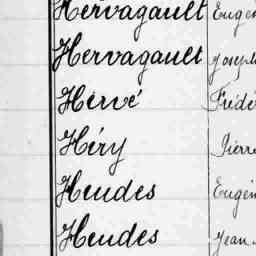 Hervagault Eugè
Hervagault Joseph
Hervé Frédé
Héry Pierre
Heudes Eugèn
Heudes Jean